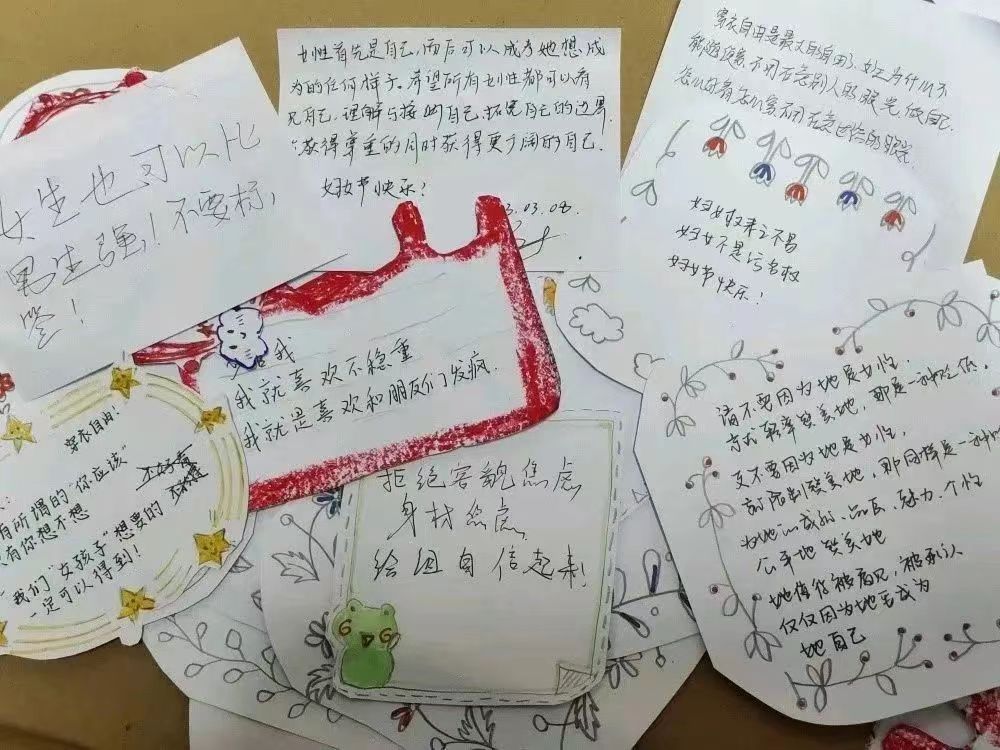 女生也可以比
男生强！不要标
签！
女性首先是自己，而后可以成为她想成
为的任何样子。希望所有女性都可以看
见自己，理解与接纳自己，拓宽自己的边界，
获得尊重的同时获得更广阔的自己.
妇女节快乐！
3.03.08.
穿衣自由是最大的自由了，女生为什么不
能随便穿，不用在意别人的眼光，做自己.
怎么好看怎么穿，不用在意世俗的眼光
妇女权来之不易
妇女不是污名权
妇女节快乐！
我
我就喜欢不稳重
我就是喜欢和朋友们发疯.
穿衣自由！
有所谓的"你应该
有你想不想
我们"女孩子"想要的
一定可以得到！
拒绝容貌焦虑
身材焦虑
给姐自信起来！
请不要因为她是女性，
方式轻率赞美她，那是一种
又不要因为她是女性，
前限制赞美她，那同样是一种
为她的成就、品质、魅力、个性
公平地赞美她
她值得被看见，被承认
仅仅因为她要成为
她自己